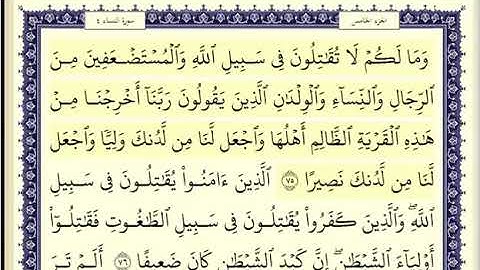 الجزء الخامس
سورة النساء ٤
وَمَا لَكُمْ لَا تُقَٰتِلُونَ فِى سَبِيلِ ٱللَّهِ وَٱلْمُسْتَضْعَفِينَ مِنَ
ٱلرِّجَالِ وَٱلنِّسَآءِ وَٱلْوِلْدَٰنِ ٱلَّذِينَ يَقُولُونَ رَبَّنَآ أَخْرِجْنَا مِنْ
هَٰذِهِ ٱلْقَرْيَةِ ٱلظَّالِمِ أَهْلُهَا وَٱجْعَل لَّنَا مِن لَّدُنكَ وَلِيًّا وَٱجْعَل
لَّنَا مِن لَّدُنكَ نَصِيرًا ٧٥ ٱلَّذِينَ ءَامَنُوا۟ يُقَٰتِلُونَ فِى سَبِيلِ
ٱللَّهِ ۖ وَٱلَّذِينَ كَفَرُوا۟ يُقَٰتِلُونَ فِى سَبِيلِ ٱلطَّٰغُوتِ فَقَٰتِلُوٓا۟
أَوْلِيَآءَ ٱلشَّيْطَٰنِ ۖ إِنَّ كَيْدَ ٱلشَّيْطَٰنِ كَانَ ضَعِيفًا ٧٦ أَلَمْ تَرَ